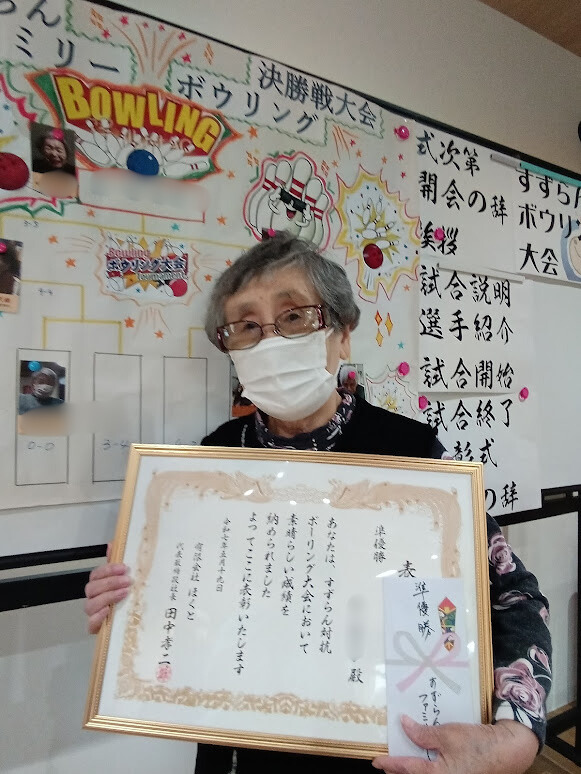 らん
ミリー
ボウリング
決勝戦大会
BOWLING
Bowling
ボウリング大会
tournament
0-0
3-4
式次第
開会の辞
挨拶
試合説明
選手紹介
試合開始
試合終了
彰式
の辞
すずらん
ボウリング
大会
表
準優勝
殿
あなたは、すずらん対抗
ボーリング大会において
素晴らしい成績を
納められました
よってここに表彰いたします
令和七年五月十九日
有限会社 ほくと
代表取締役社長 田中孝二
準優勝
すずらん
ファミリー